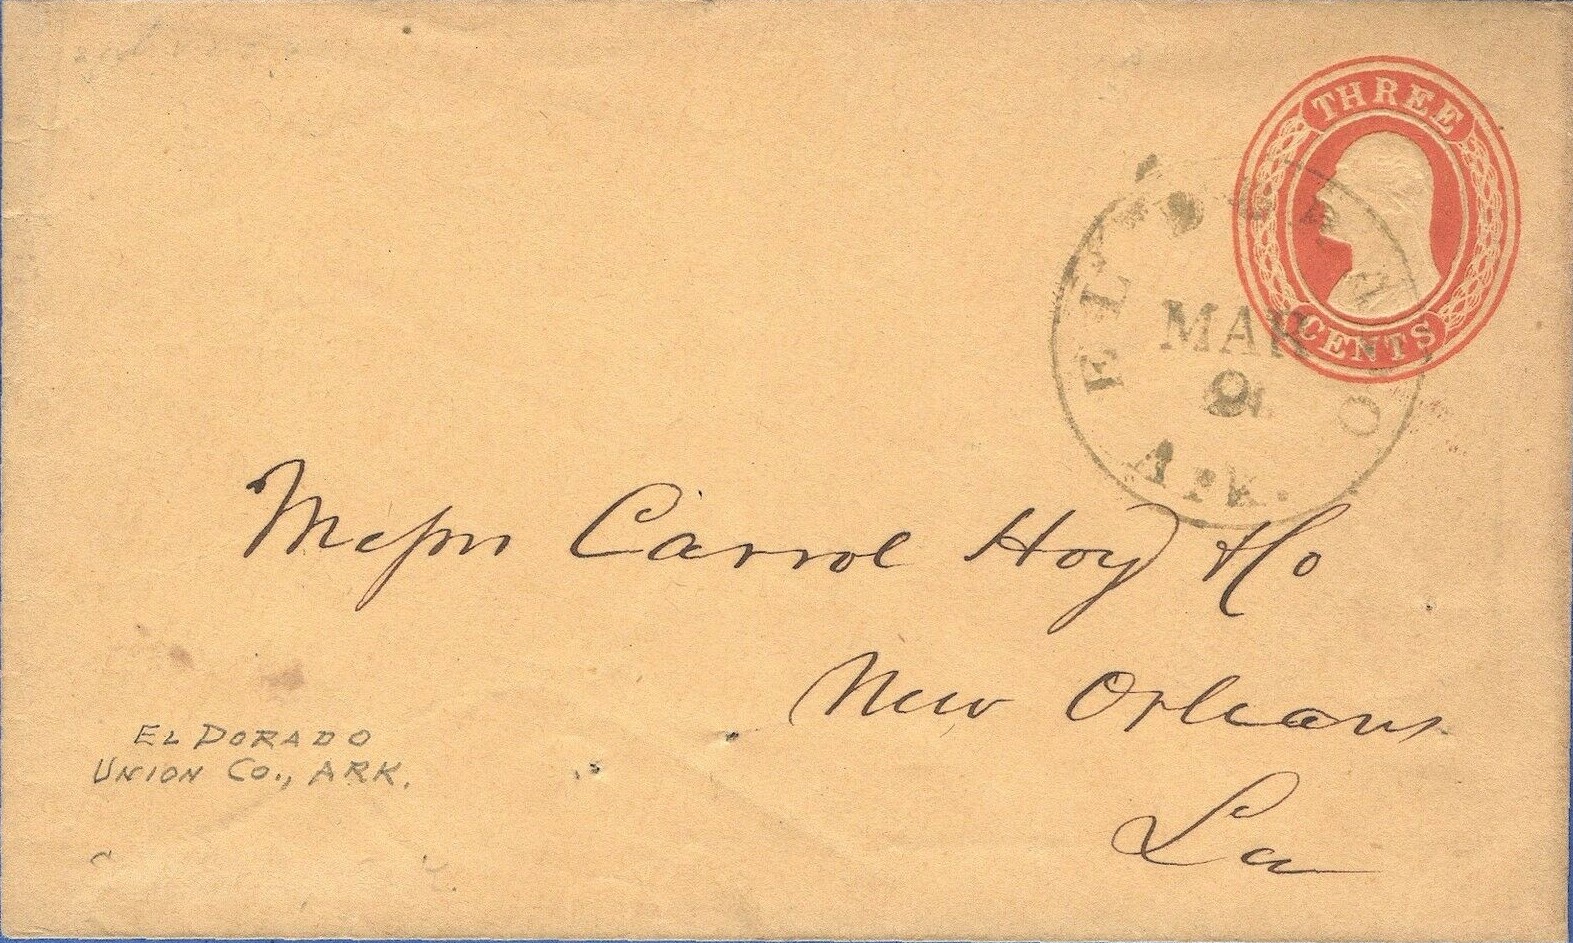 THREE
CENTS
EL DORADO
MAR
9
ARK.
Messrs Carrol Hoy & Co
New Orleans
La
EL DORADO
UNION CO., ARK.